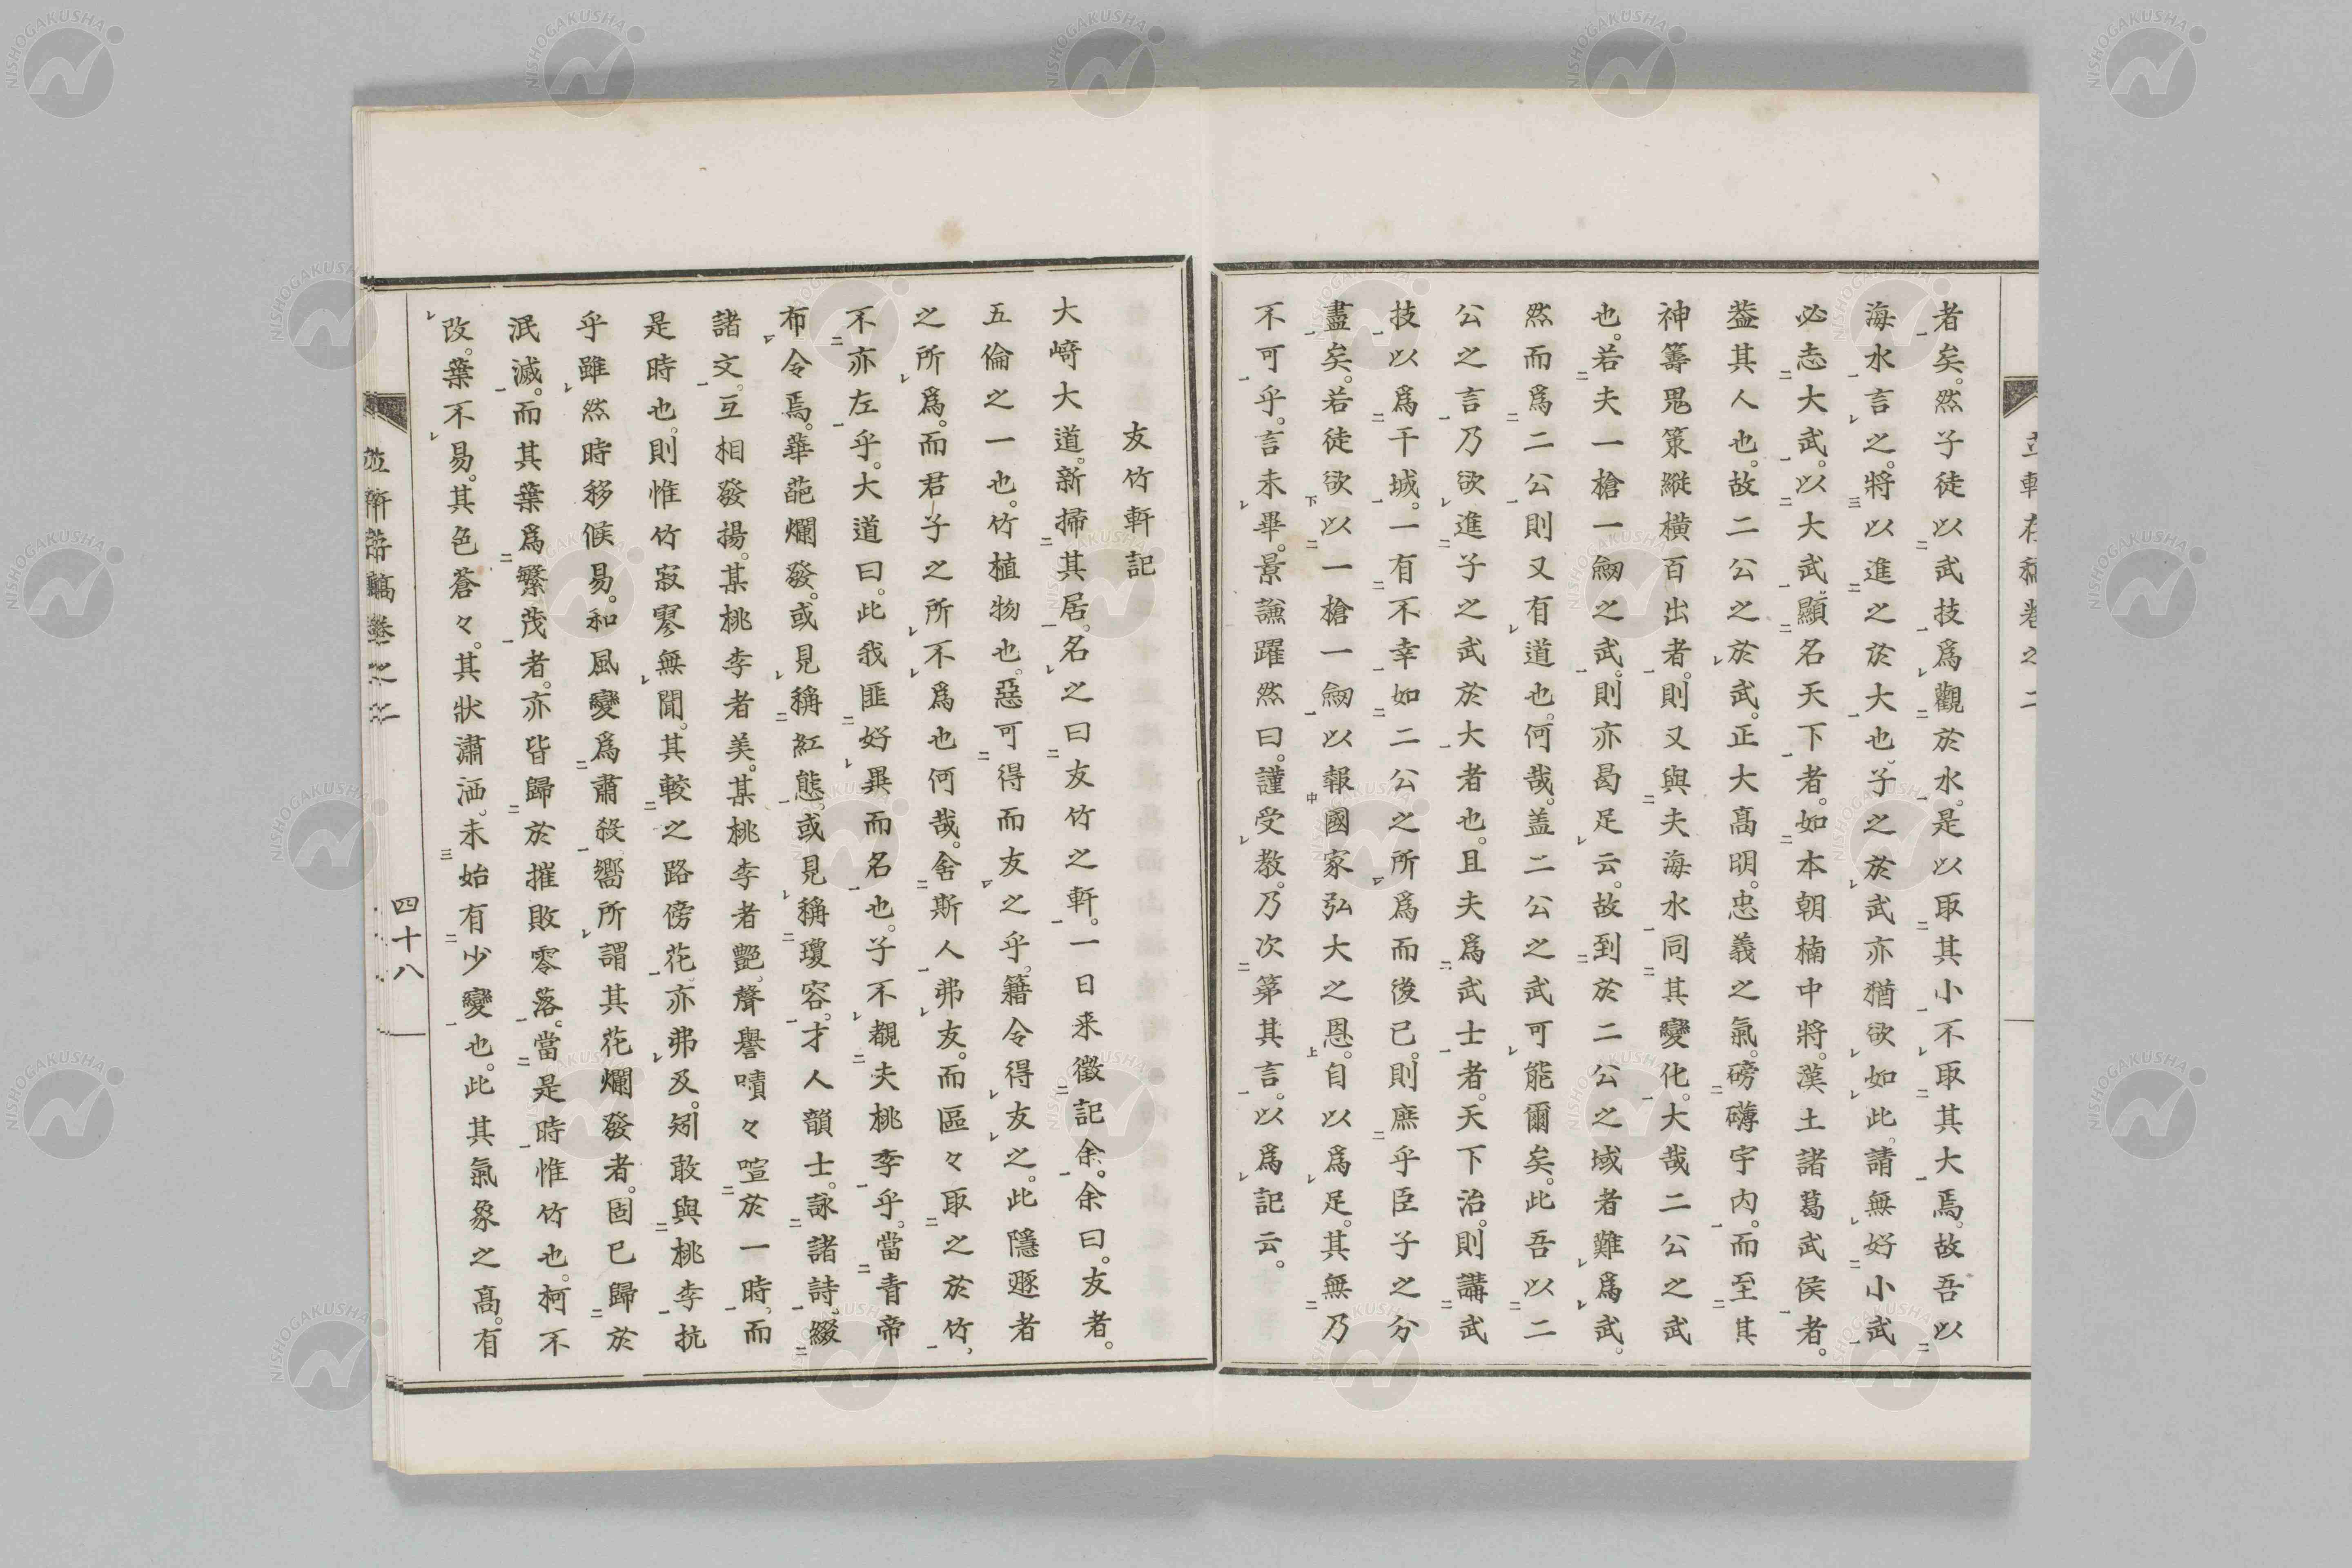 者矣。然子徒以武技爲觀於水。是以取其小不取其大焉。故吾以
海水言之。將以進之於大也。子之於武亦猶欲如此。請無好小武
必志大武。以大武顯名天下者。如本朝楠中將。漢土諸葛武侯者。
葢其人也。故二公之於武。正大髙明。忠義之氣。磅礴宇内。而至其
神籌鬼策縱横百出者。則又與夫海水同其變化。大哉二公之武
也。若夫一槍一劒之武。則亦曷足云。故到於二公之域者難爲武。
然而爲二公則又有道也。何哉。盖二公之武可能爾矣。此吾以二
公之言乃欲進子之武於大者也。且夫爲武士者。天下治。則講武
技以爲干城。一有不幸如二公之所爲而後已。則庶乎臣子之分
盡矣。若徒欲以一槍一劒以報國家弘大之恩。自以爲足。其無乃
不可乎。言未畢。景謙躍然曰。謹受教。乃次第其言。以爲記云。
友竹軒記
大﨑大道。新掃其居。名之曰友竹之軒。一日来徵記余。余曰。友者。
五倫之一也。竹植物也。惡可得而友之乎。籍令得友之。此隱遯者
之所爲。而君子之所不爲也何哉。舍斯人弗友。而區々取之於竹、
不亦左乎。大道曰。此我匪好異而名也。子不覩夫桃李乎。當青帝
布令焉。華葩爛發。或見稱紅態。或見稱瓊容。才人韻士。詠諸詩、綴
諸文。互相發揚。某桃李者美。某桃李者艷。聲譽嘖々喧於一時、而
是時也。則惟竹寂寥無聞。其較之路傍花。亦弗及。矧敢與桃李抗
乎雖然時移候易。和風變爲肅殺嚮所謂其花爛發者。固已歸於
泯滅。而其葉爲繁茂者。亦皆歸於摧敗零落。當是時惟竹也。柯不
改。葉不易。其色蒼々。其狀瀟洒。未始有少變也。此其氣象之髙。有
四十八